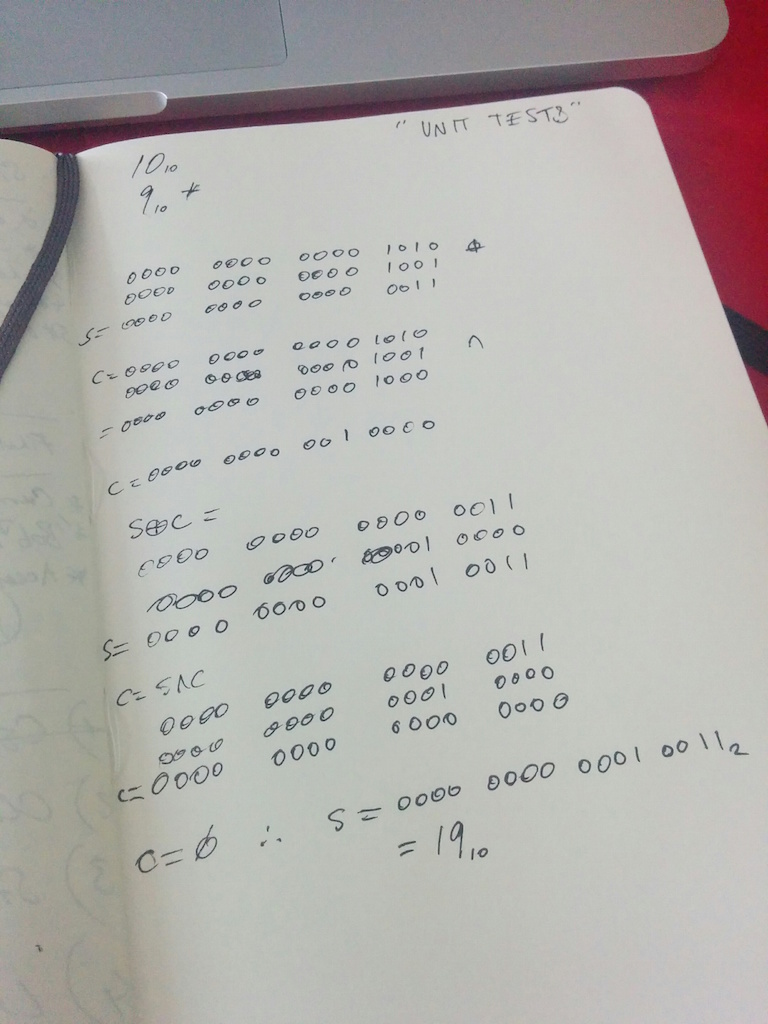 "UNIT TESTS"
10₁₀
9₁₀ +
0000 0000 0000 1010 ⊕
0000 0000 0000 1001
S= 0000 0000 0000 0011
C= 0000 0000 0000 1010 ∧
0000 0000 0000 1001
= 0000 0000 0000 1000
C= 0000 0000 001 0000
S⊕C =
0000 0000 0000 0011
0000 0000 0001 0000
S= 0000 0000 0001 0011
C= S∧C
0000 0000 0000 0011
0000 0000 0001 0000
C= 0000 0000 0000 0000
C=∅ ∴ S= 0000 0000 0001 0011₂
= 19₁₀